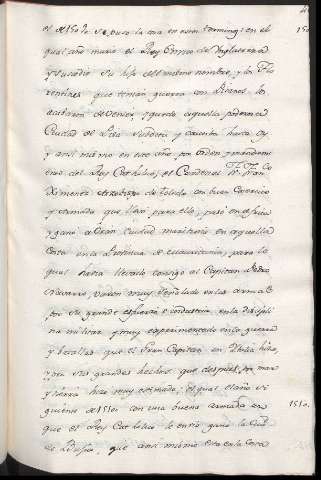 4
el de 1509 se puso la era en estos terminos: en el 150
qual año murio el Rey Enrrico de Inglaterra
y sucedio su hijo del mismo nombre, y los Flo
rentines que tenian guerra con Pisanos los
acabaron de vencer, y quedo aquella poderosa
Ciudad de Pisa subdita y cauenta hasta oy,
y ansi mismo en este año por orden, y mandami
ento del Rey Catholico, el Cardenal Fr. Fran.co
Ximenez Arzobispo de Toledo con buen exercito
y armada que llevó para ello, pasó en Africa
y ganó a Oran Ciudad maritima en aquella
costa en la Provincia de Mauritania, para lo
qual havia llevado consigo al Capitan Pedro
Navarro, varon muy señalado en las armas,
por su grande esfuerzo e industria, en la disipli
na militar y muy experimentado en las guerras
y batallas que el Gran Capitan en Italia hizo,
y por sus grandes hechos que despues, por mar
y tierra hizo muy estimado, el qual el año si
guiente de 1510 con una buena armada en 1510.
que el Rey Catholico le envió ganó la Ciud.
de Bugia, que ansi mismo esta en la costa